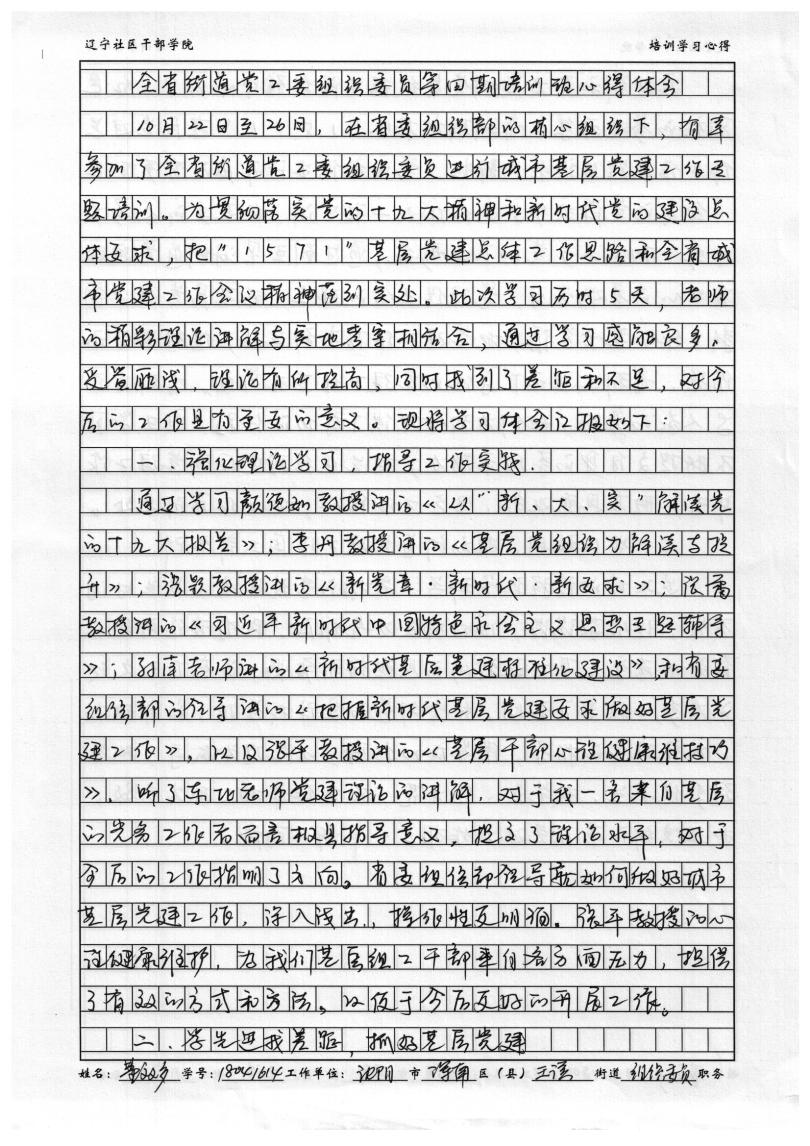 辽宁社区干部学院 培训学习心得
全省街道党工委组织委员第四期培训班心得体会
10月22日至26日，在省委组织部的精心组织下，有幸
参加了全省街道党工委组织委员进行城市基层党建工作专
题培训。为贯彻落实党的十九大精神和新时代党的建设总
体要求，把“1571”基层党建总体工作思路和全省城
市党建工作会议精神落到实处。此次学习历时5天，老师
的精彩理论讲解与实地考察相结合，通过学习感触良多，
受益匪浅，理论有所提高，同时找到了差距和不足，对今
后的工作具有重要的意义。现将学习体会汇报如下：
一、强化理论学习，指导工作实践.
通过学习颜德如教授讲的《以“新、大、实”解读党
的十九大报告》；李丹教授讲的《基层党组织力解读与提
升》；张颖教授讲的《新党章·新时代·新要求》；张
教授讲的《习近平新时代中国特色社会主义思想主题辅导
》；老师讲的《新时代基层党建标准化建设》，和省委
组织部的领导讲的《把握新时代基层党建要求做好基层党
建工作》，以及张平教授讲的《基层干部心理健康维护技巧
》，听了东北老师党建理论的讲解，对于我一名来自基层
的党务工作者而言极具指导意义，提高了理论水平，对于
今后的工作指明了方向。省委组织部领导就如何做好城市
基层党建工作，深入浅出，操作性更明确。张平教授的心
理健康维护，为我们基层组工干部来自各方面压力，提供
了有效的方式和方法，以便于今后更好的开展工作。
二、学先进找差距，抓好基层党建
姓名： 学号：18041614 工作单位：沈阳 市 浑南 区（县） 街道 组织委员 职务